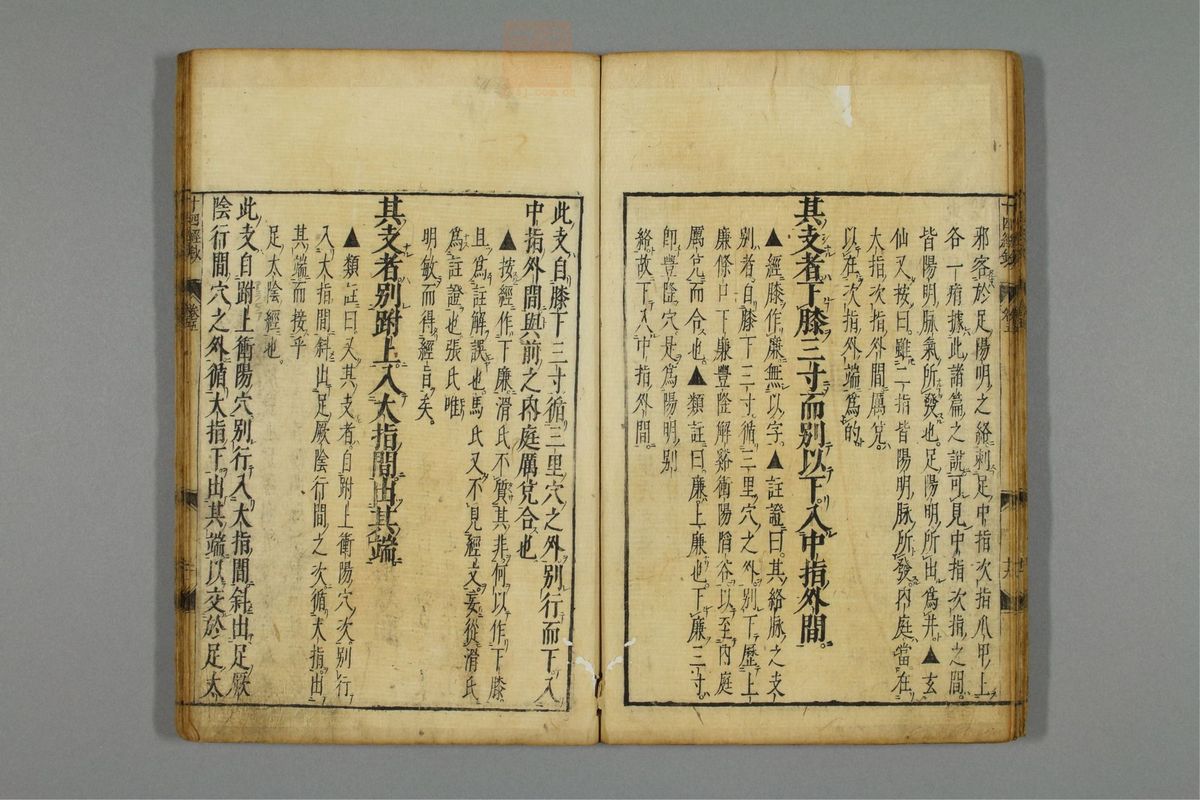 邪客於足陽明之經刺足中指次指爪甲上
各一痏據此諸篇之說可見中指次指之間
皆陽明脉氣所發也足陽明所出為井▲玄
仙又按曰雖二指皆陽明脉所發內庭當在
大指次指外間厲兌
以在次指外端為的
其支者下膝三寸而別以下入中指外間
▲經膝作廉無以字▲註證曰其絡脉之支
別者自膝下三寸循三里穴之外別下歷上
廉條口下廉豐隆解谿衝陽陷谷以至內庭
厲兌而合也▲類註曰廉上廉也下廉三寸
即豐隆穴是為陽明別
絡故下入中指外間
此支自膝下三寸循三里穴之外別行而下入
中指外間與前之內庭厲兌合也
▲按經作下廉滑氏不質其非何以作下膝
且為註解誤也馬氏又不見經文妄從滑氏
為註證也張氏唯
明敏而得經旨矣
其支者別跗上入大指間出其端
▲類註曰又其支者自跗上衝陽穴次別行
入大指間斜出足厥陰行間之次循大指出
其端而接乎
足太陰經也
此支自跗上衝陽穴別行入大指間斜出足厥
陰行間穴之外循大指下出其端以交於足太